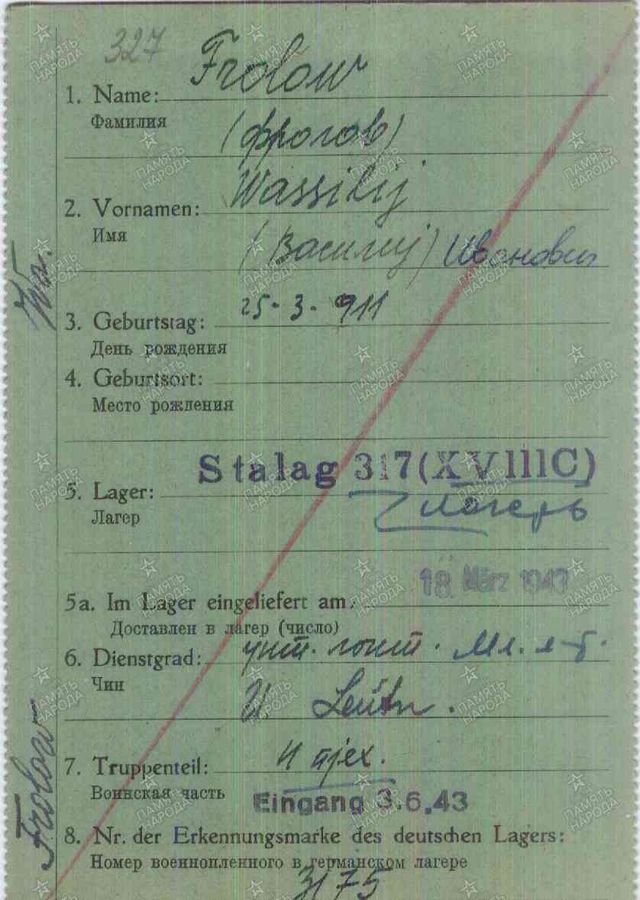 327
Frolow
1. Name:
Фамилия
(Фролов)
Wassilij
2. Vornamen:
Имя
(Василиј) Иванович
Wa.
25-3-911
3. Geburtstag:
День рождения
4. Geburtsort:
Место рождения
Stalag 317(XVIIIC)
5. Lager:
Лагер
лагерь
18. März 1943
5a. Im Lager eingeliefert am:
Доставлен в лагер (число)
6. Dienstgrad: Мл. л-т.
Чин
U. Leutn.
7. Truppenteil:
Воинская часть
Eingang 3.6.43
Frolow
8. Nr. der Erkennungsmarke des deutschen Lagers:
Номер военнопленного в германском лагере
3175
ПАМЯТЬ НАРОДА